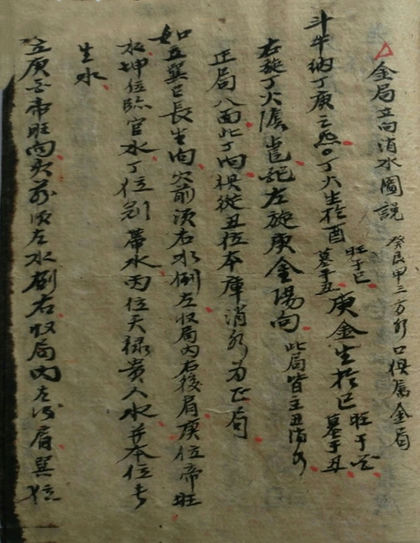 金局立向消水圖說 癸艮甲三方水口俱属金局
斗牛纳丁庚之炁○丁火生於酉 旺于巳 墓于丑 庚金生於巳 旺于酉 墓于丑
右旋丁火陰 左旋庚金陽向 此局皆主丑消水
正局八面此丁向俱從丑位本庫消水为正局
如立巽巳長生向穴前須右水倒左收局内右後肩庚位帝旺
水坤位臨官水丁位冠帶水丙位天禄貴人水并本位長
生水
立庚酉帝旺向穴前須左水倒右收局内左後肩巽位